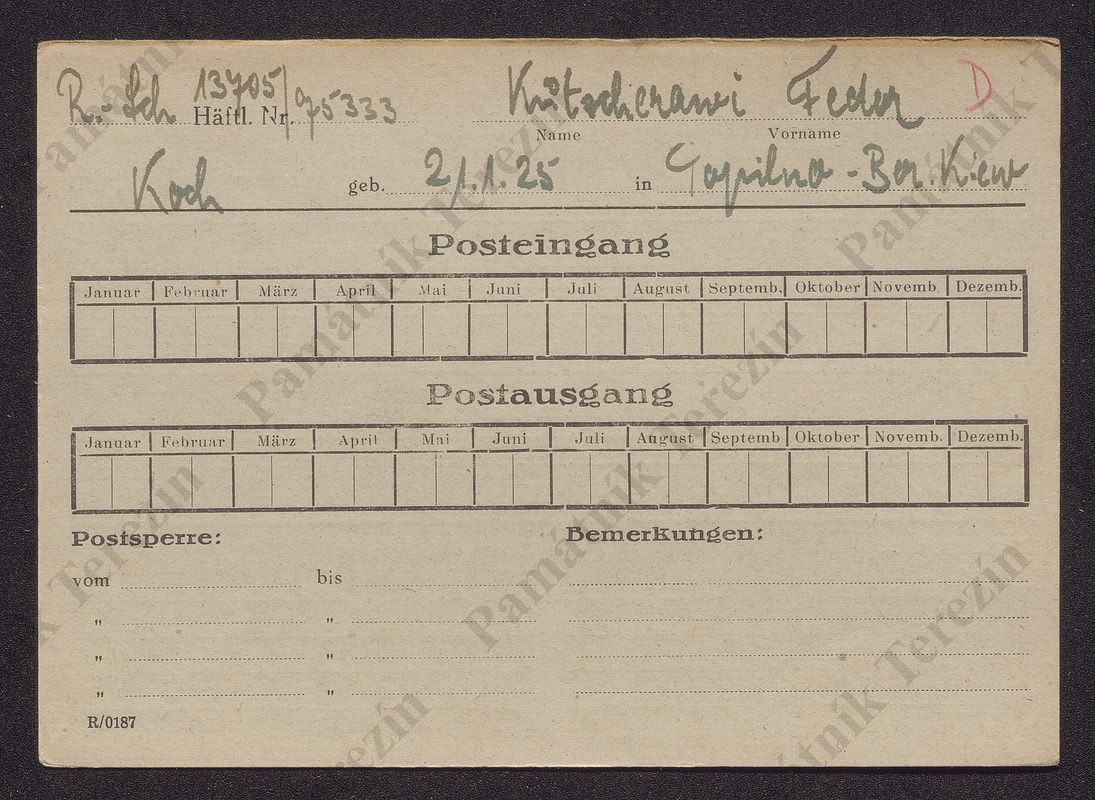 R.-Sch 13705/ 975333 Kutscherawi Feder D
Häftl. Nr.
Name Vorname
Koch geb. 21.1.25 in Bor. Kiew
Posteingang
Januar Februar März April Mai Juni Juli August Septemb. Oktober Novemb. Dezemb.
Postausgang
Januar Februar März April Mai Juni Juli August Septemb Oktober Novemb. Dezemb.
Postsperre: Bemerkungen:
vom bis
" "
" "
" "
R/0187
Památník Terezín